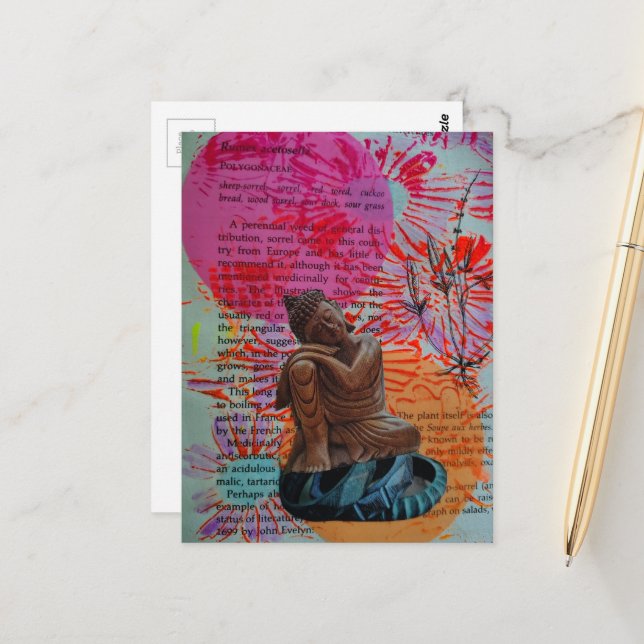 Place
zzle
Rumex acetosella
POLYGONACEAE
sheep-sorrel, sorrel, red weed, cuckoo
bread, wood sorrel, sour dock, sour grass
A perennial weed of general dis-
tribution, sorrel came to this coun-
try from Europe and has little to
recommend it, although it has been
mentioned medicinally for centu-
ries. The illustration shows the
character of the but not the
usually red or es, nor
the triangular does,
however, suggest
which, in the po
grows, goes d
and makes it
This long
to boiling wa
used in France
by the French as
Medicinally, the
antiscorbutic, a
an acidulous
malic, tartaric
Perhaps
example of
status of literature,
1699 by John Evelyn:
The plant itself is also
the Soupe aux herbes.
known to be
only mildly
analysis, oxa
sheep-sorrel (an
can be raise
graph on salads,